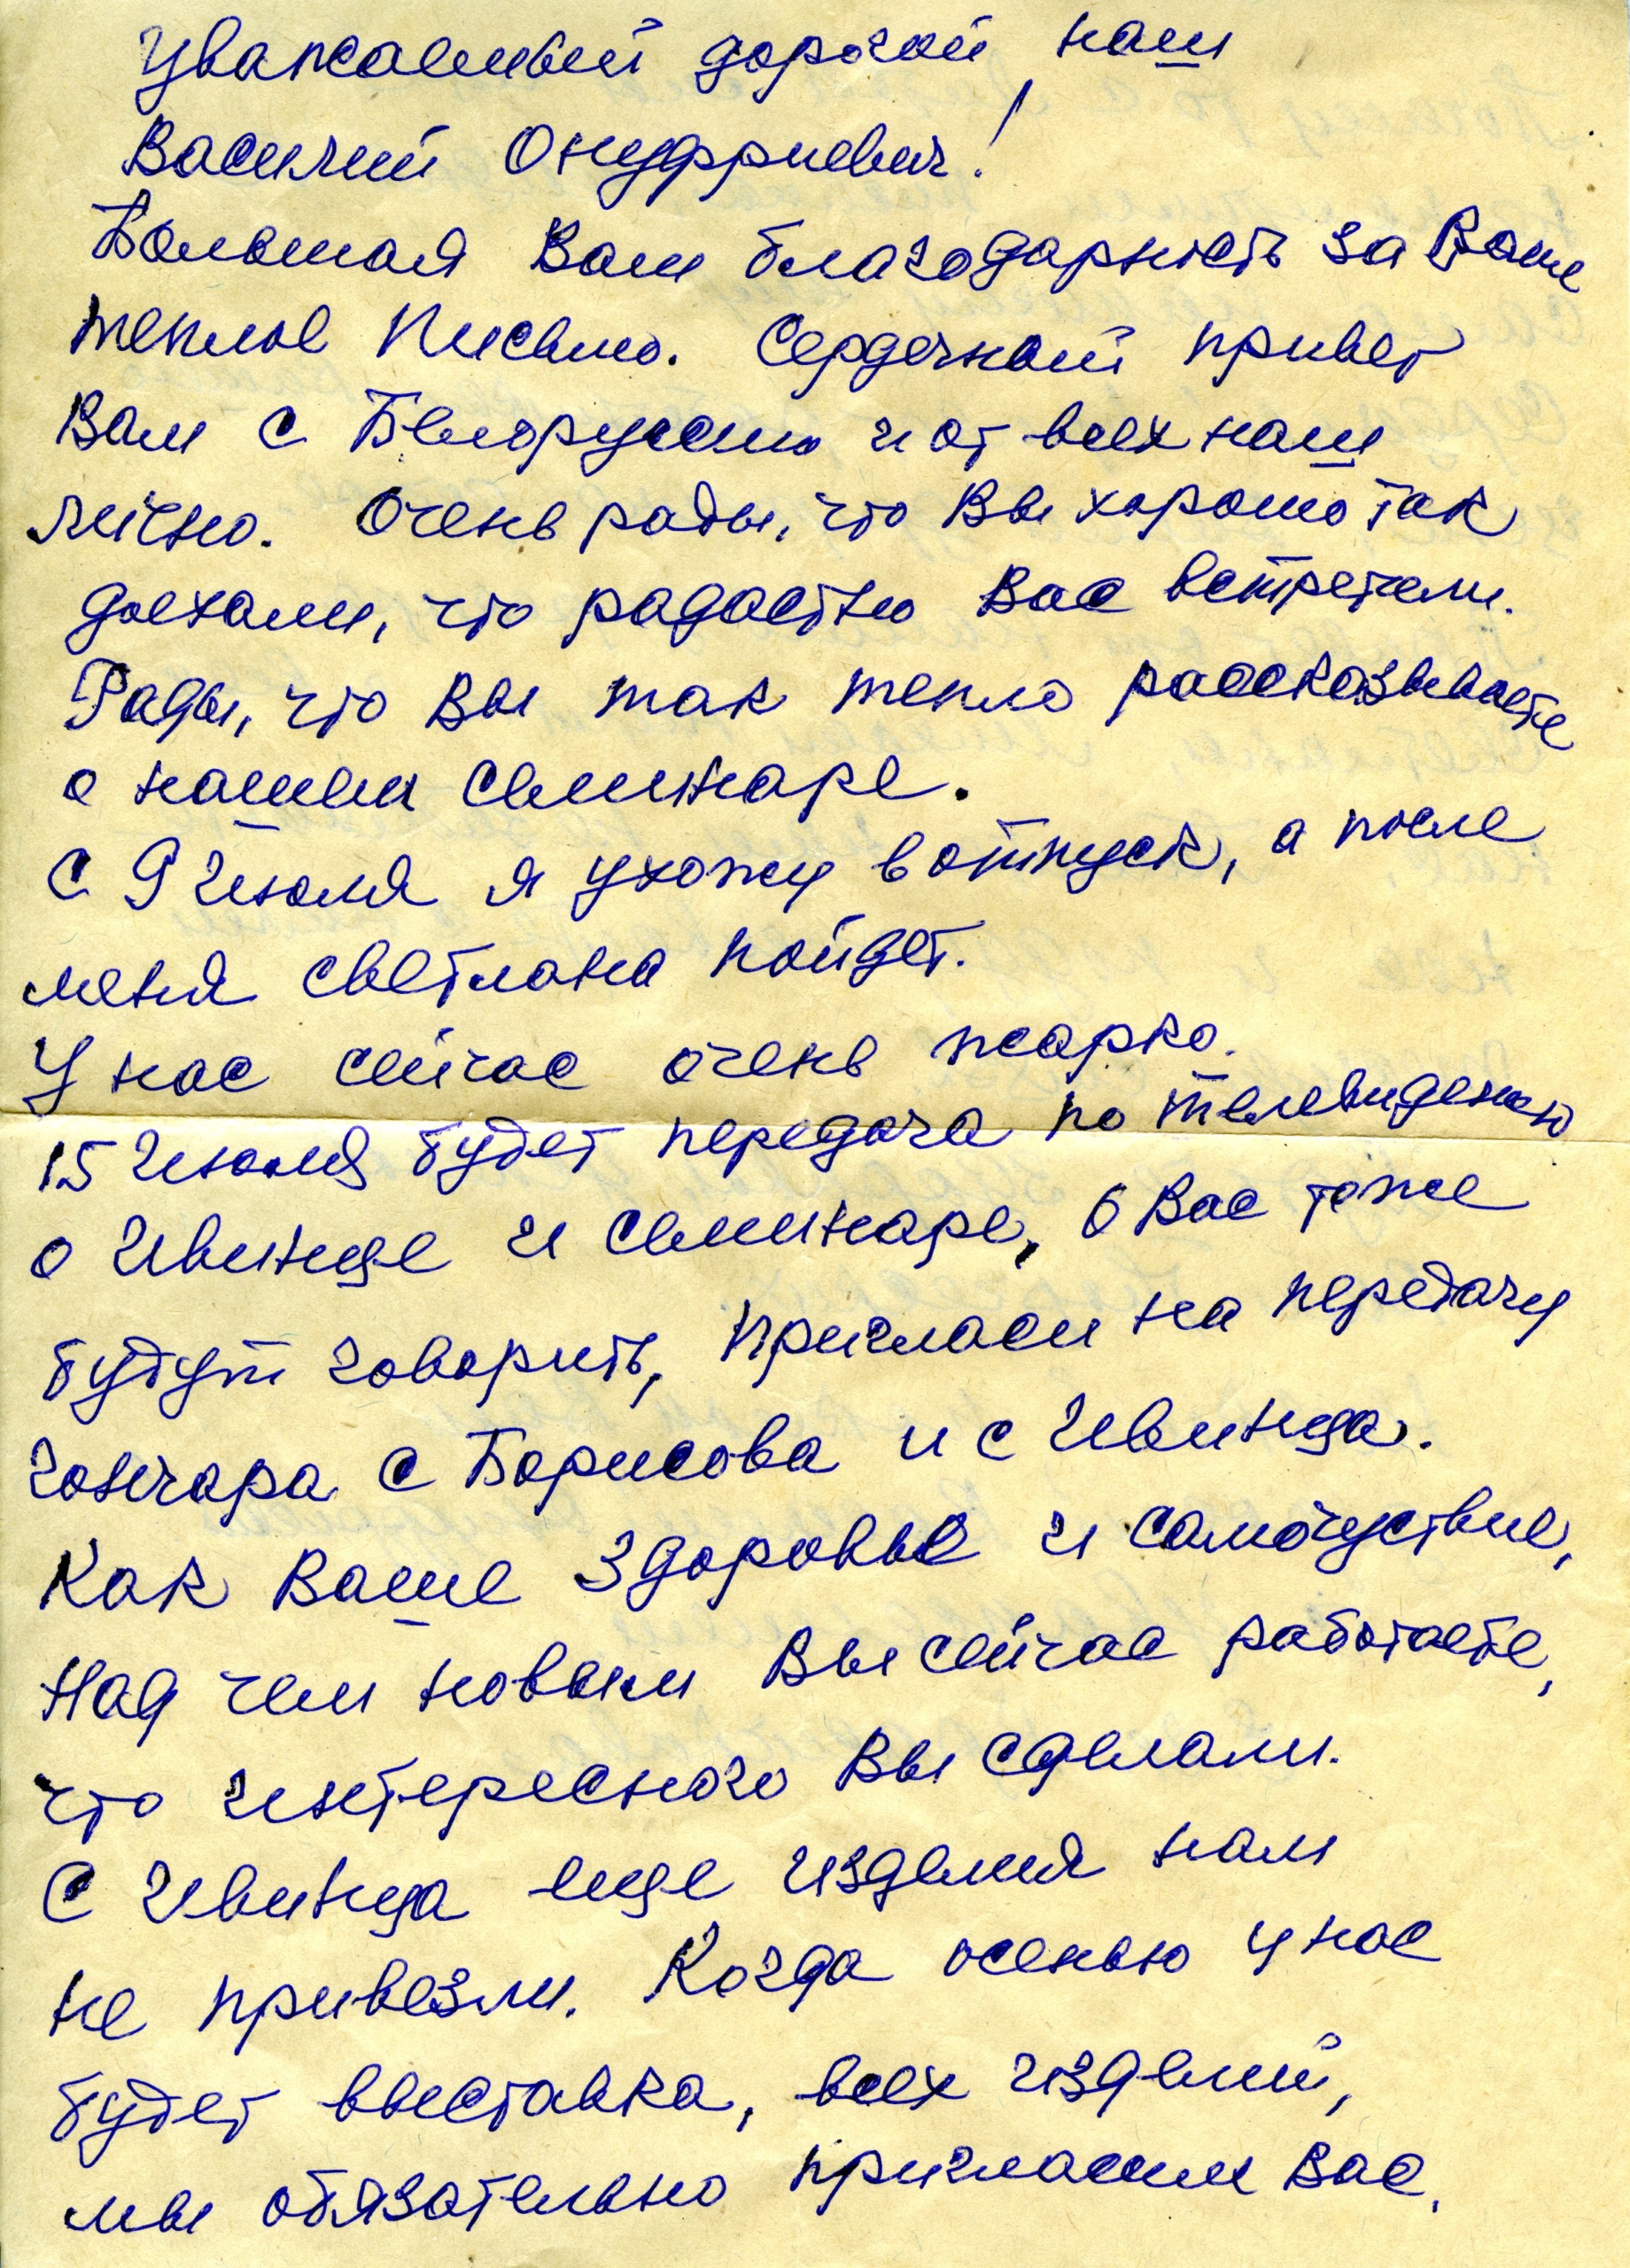 Уважаемый дорогой наш
Василий Онуфриевич!
Большая Вам благодарность за Ваше
теплое письмо. Сердечный привет
Вам с Белоруссии и от всех нас
лично. Очень рады, что Вы хорошо так
доехали, что радостно Вас встретили.
Рады, что Вы так тепло рассказываете
о нашем семинаре.
С 9 июля я ухожу в отпуск, а после
меня Светлана пойдет.
У нас сейчас очень жарко.
15 июля будет передача по телевидению
о Ивенце и семинаре, о Вас тоже
будут говорить, пригласи на передачу
гончара с Борисова и с Ивенца.
Как Ваше здоровье и самочуствие,
Над чем новым Вы сейчас работаете,
что интересного Вы сделали.
С Ивенца еще изделия нам
не привезли. Когда осенью у нас
будет выставка, всех изделий,
мы обязательно пригласим Вас.